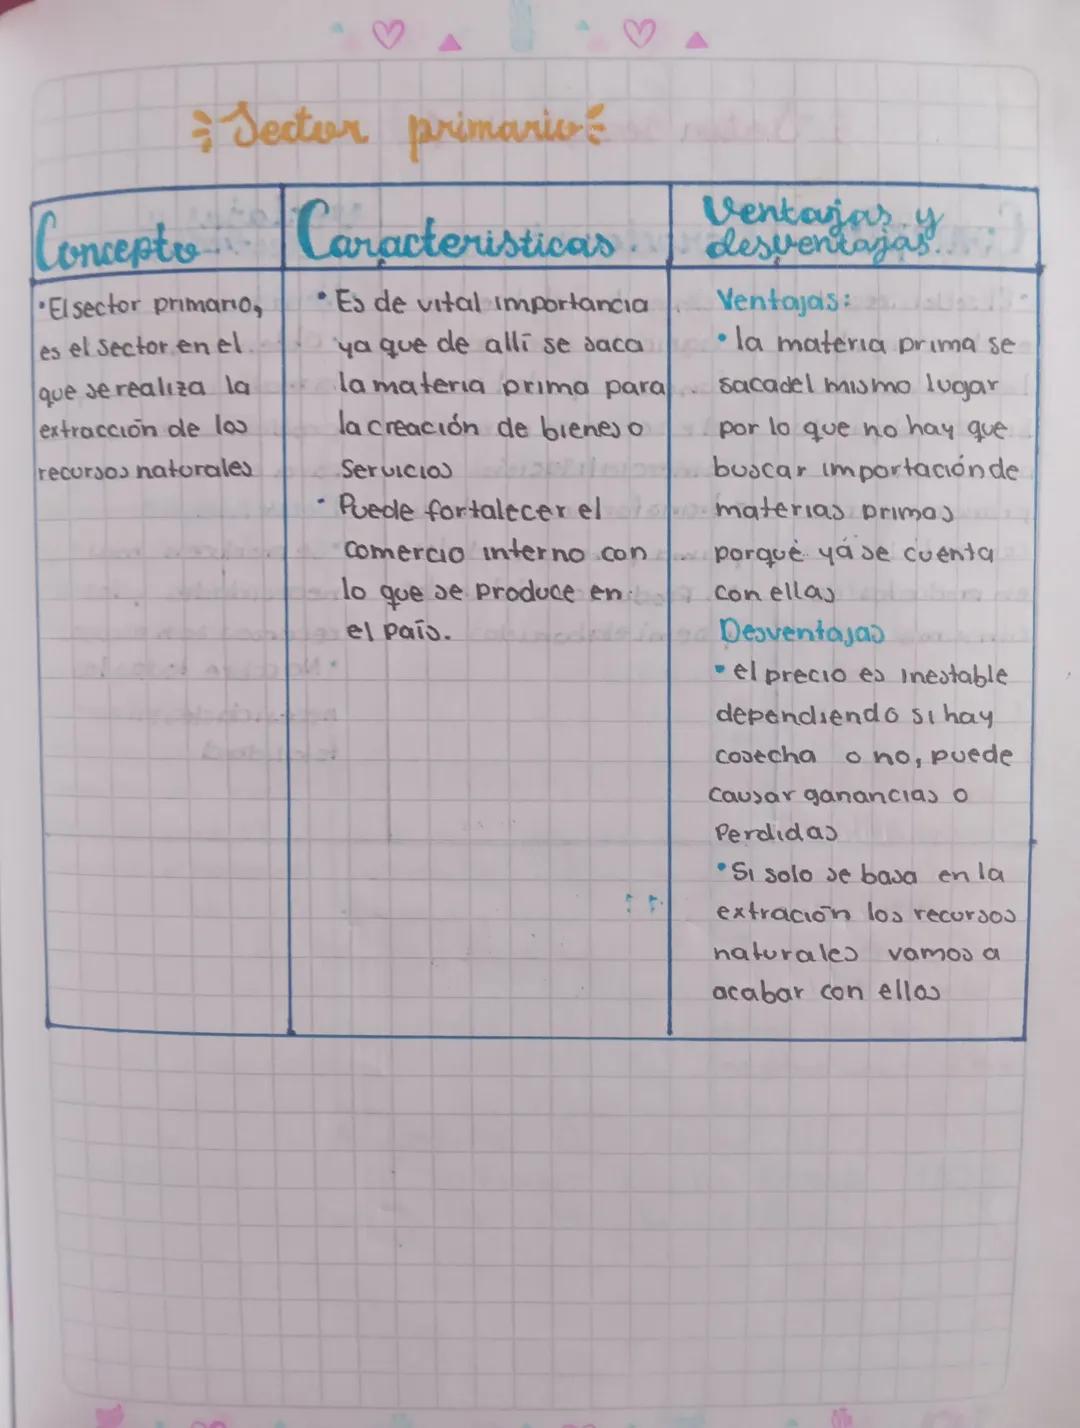 Sector primario
Concepto
Caracteristicas.
Ventajas y
desventajas.
• El sector primario,
es el sector en el
que se realiza la
extracción de los
recursos naturales
• Es de vital importancia
ya que de allí se saca
la materia prima para
la creación de bienes o
Servicios
• Puede fortalecer el
comercio interno con
lo que se produce en
el país.
Ventajas:
• la materia prima se
saca del mismo lugar
por lo que no hay que
buscar importación de
materias primas
porqué yá se cuenta
con ellas
Desventajas
• el precio es inestable
dependiendo si hay
cosecha o no, puede
causar ganancias o
Perdidas
• Si solo se basa en la
extración los recursos
naturales vamos a
acabar con ellos